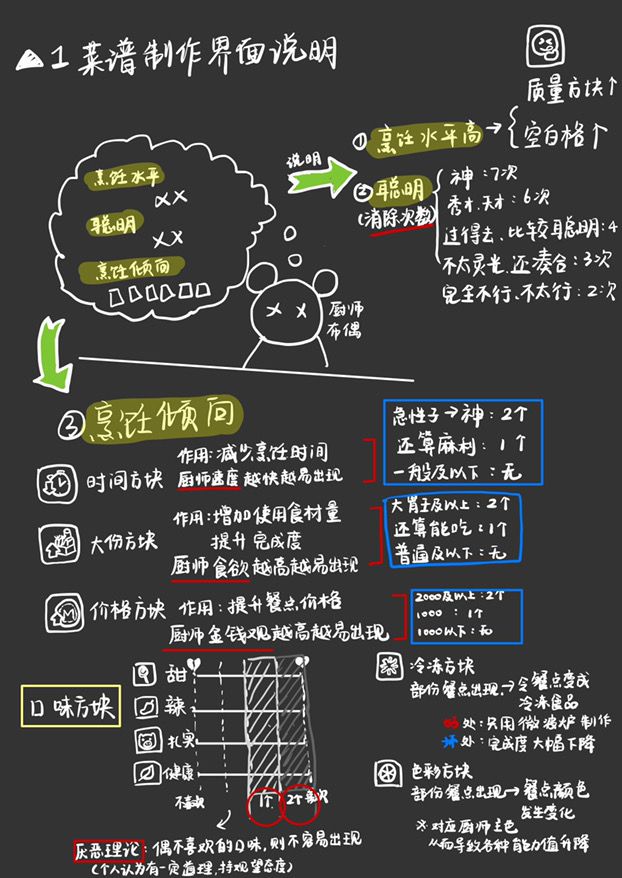 1 菜谱制作界面说明
质量方块↑
① 烹饪水平高→{
空白格↑
说明
② 聪明
(消除次数)
神:7次
秀才、天才:6次
过得去、比较聪明:4
不太灵光、还凑合:3次
完全不行、不太行:2次
烹饪水平
XX
聪明
XX
烹饪倾向
厨师
布偶
③ 烹饪倾向
急性子→神:2个
还算麻利:1个
一般及以下:无
时间方块
作用:减少烹饪时间
厨师速度越快越易出现
大份方块
作用:增加使用食材量
提升完成度
厨师食欲越高越易出现
大胃王及以上:2个
还算能吃:1个
普遍及以下:无
价格方块
作用:提升餐点价格
厨师金钱观越高越易出现
2000及以上:2个
1000 :1个
1000以下:无
口味方块
甜
辣
扎实
健康
不喜欢
1个
2个喜欢
厌恶理论:偶不喜欢的口味,则不容易出现
(个人认为有一定道理,持观望态度)
冷冻方块
部份餐点出现→令餐点变成
冷冻食品
好处:只用微波炉制作
坏处:完成度大幅下降
色彩方块
部份餐点出现→餐点颜色
发生变化
※对应厨师主色
从而导致各种能力值升降